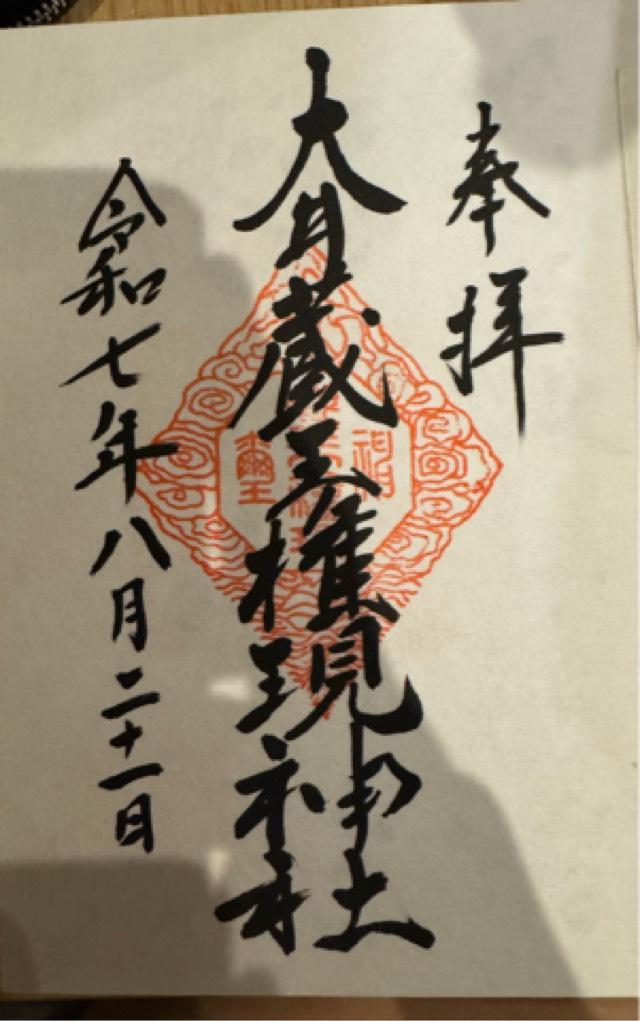 奉拝
大井蔵王権現神社
令和七年八月二十一日